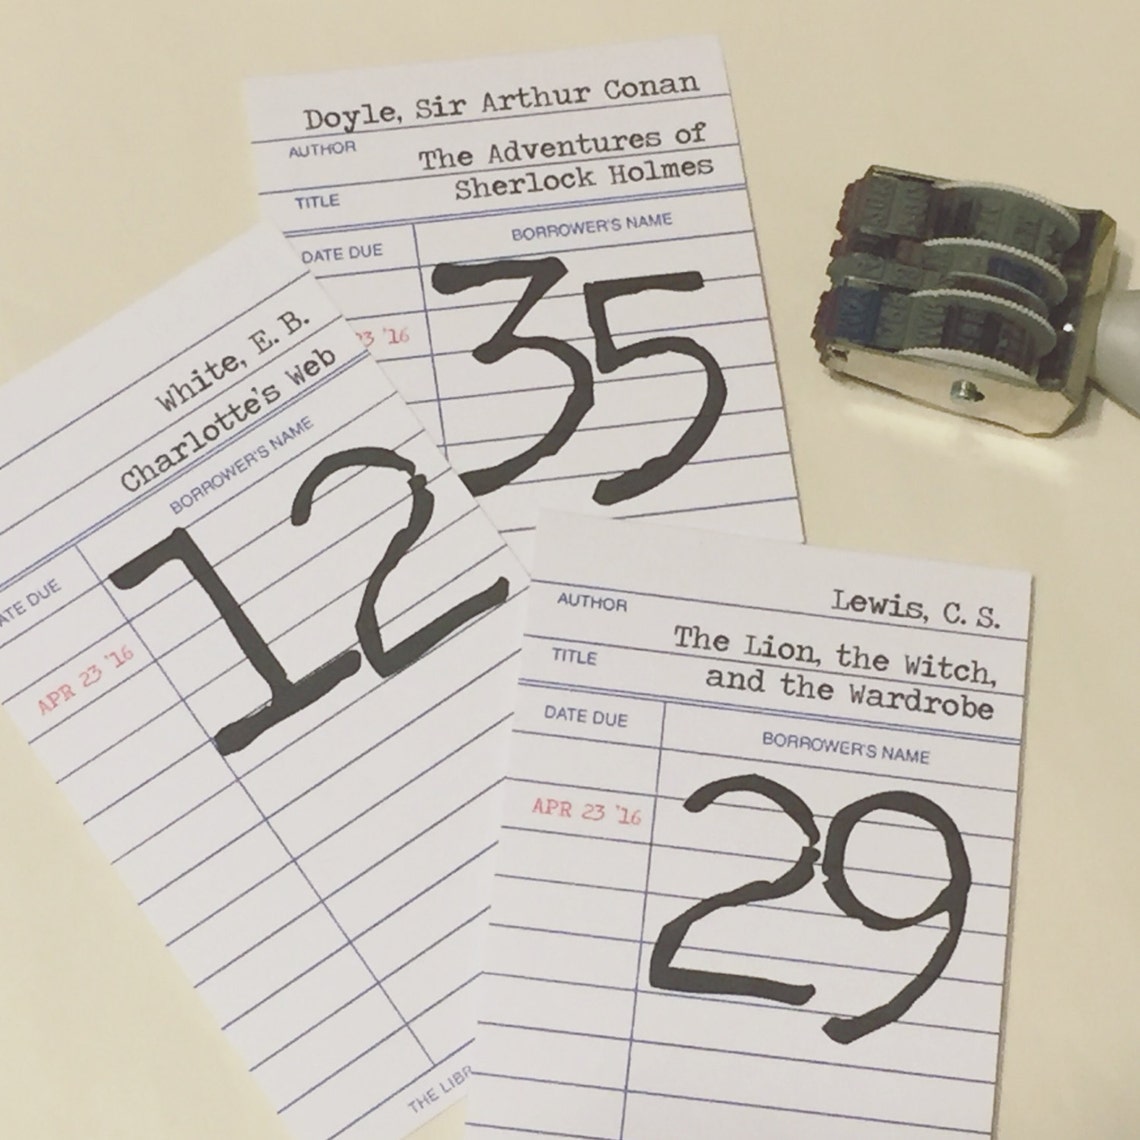 Doyle, Sir Arthur Conan
AUTHOR
The Adventures of
TITLE
Sherlock Holmes
DATE DUE
BORROWER'S NAME
23 '16
35
White, E. B.
Charlotte's Web
BORROWER'S NAME
ATE DUE
APR 23 '16
12
THE LIBR
Lewis, C. S.
AUTHOR
The Lion, the Witch,
TITLE
and the Wardrobe
DATE DUE
BORROWER'S NAME
APR 23 '16
29